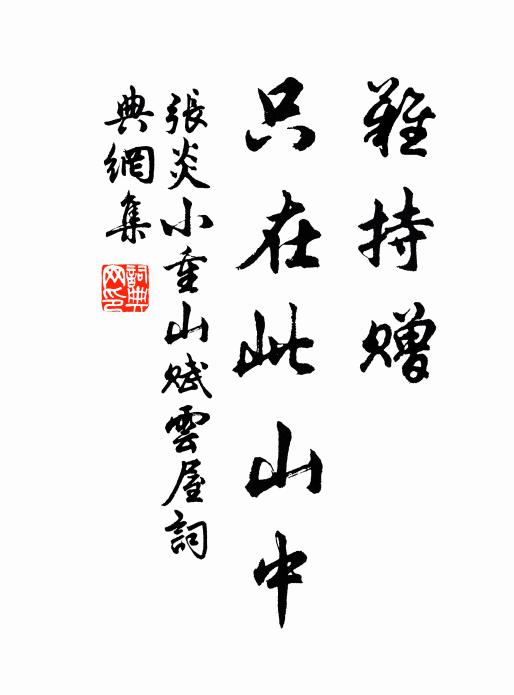 難持贈
只在此山中
張炎小重山賦雲屋詞
典網集
詞典網印